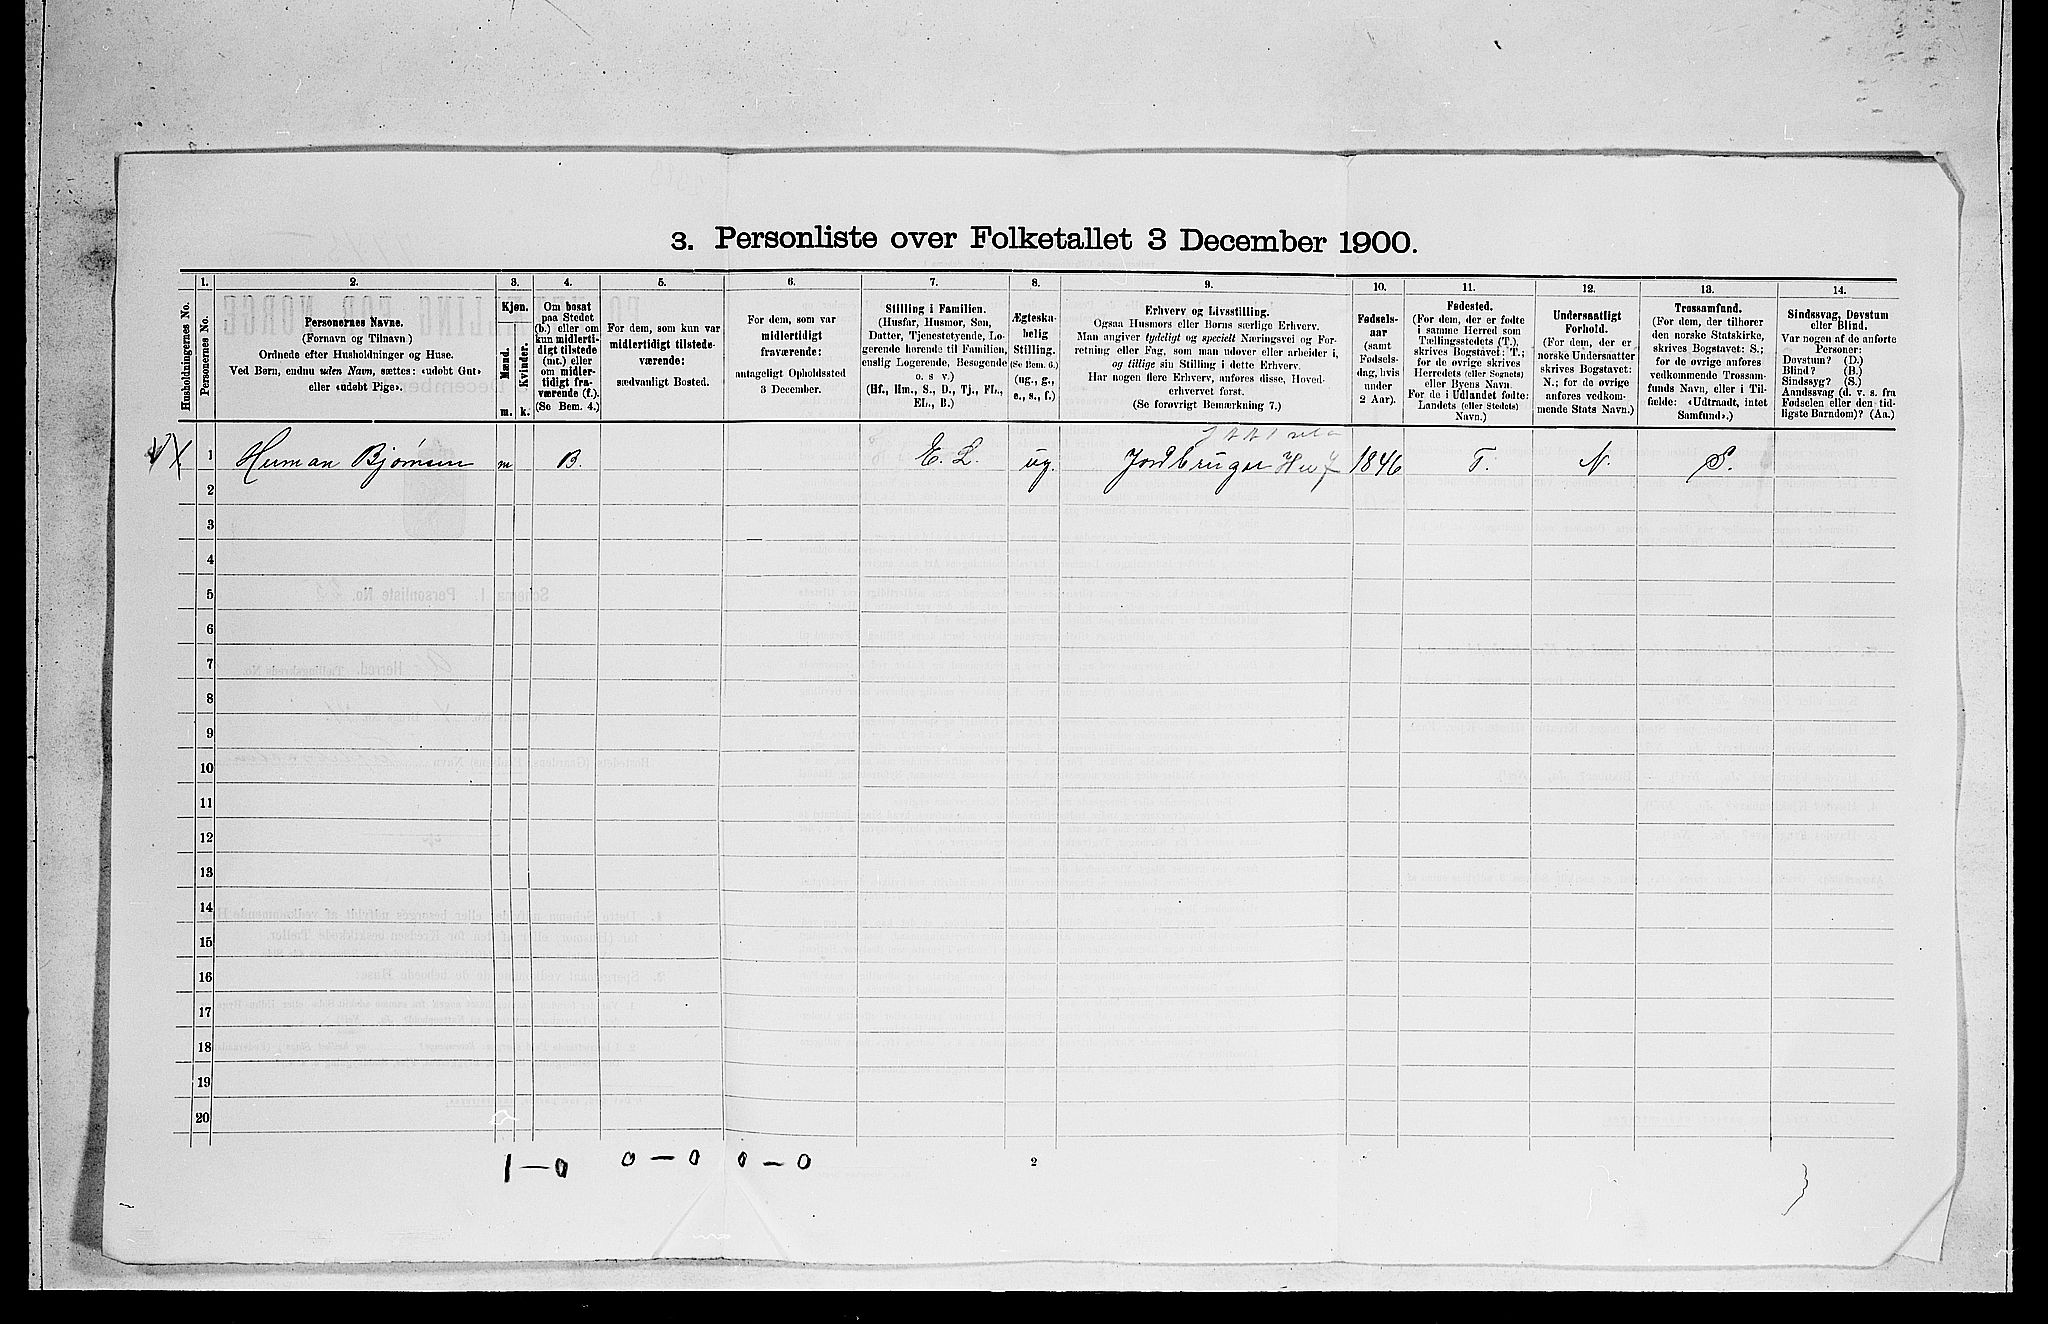 3. Personliste over Folketallet 3 December 1900.
Husholdningernes No.
1.
Personernes No.
2.
Personernes Navne.
(Fornavn og Tilnavn)
Ordnede efter Husholdninger og Huse.
Ved Børn, endnu uden Navn, sættes: «udøbt Gut»
eller «udøbt Pige».
3.
Kjøn.
Mænd.
Kvinder.
m.
k.
4.
Om bosat
paa Stedet
(b.) eller om
kun midlerti-
digt tilstede
(mt.) eller
om midler-
tidigt fra-
værende (f.).
(Se Bem. 4.)
5.
For dem, som kun var
midlertidigt tilstede-
værende:
sædvanligt Bosted.
6.
For dem, som var
midlertidigt
fraværende:
antageligt Opholdssted
3 December.
7.
Stilling i Familien.
(Husfar, Husmor, Søn,
Datter, Tjenestetyende, Lo-
gerende hørende til Familien,
enslig Logerende, Besøgende
o. s. v.)
(Hf., Hm., S., D., Tj., FL.,
EL., B.)
8.
Ægteska-
belig
Stilling.
(Se Bem. 6.)
(ug., g.,
e., s., f.)
9.
Erhverv og Livsstilling.
Ogsaa Husmors eller Børns særlige Erhverv.
Man angiver tydeligt og specielt Næringsvei og For-
retning eller Fag, som man udøver eller arbeider i,
og tillige sin Stilling i dette Erhverv.
Har nogen flere Erhverv, anføres disse, Hoved-
erhvervet først.
(Se forøvrigt Bemærkning 7.)
10.
Fødsels-
aar
(samt
Fødsels-
dag, hvis
under
2 Aar).
11.
Fødested.
(For dem, der er fødte
i samme Herred som
Tællingsstedet (T.),
skrives Bogstavet: T.;
for de øvrige skrives
Herredets (eller Sognets)
eller Byens Navn.
For de i Udlandet fødte:
Landets (eller Stedets)
Navn.)
12.
Undersaatligt
Forhold.
(For dem, der er
norske Undersaatter
skrives Bogstavet:
N.; for de øvrige
anføres vedkom-
mende Stats Navn.)
13.
Trossamfund.
(For dem, der tilhører
den norske Statskirke,
skrives Bogstavet: S.;
for de øvrige anføres
vedkommende Trossam-
funds Navn, eller i Til-
fælde: «Udtraadt, intet
Samfund».)
14.
Sindssvag, Døvstum
eller Blind.
Var nogen af de anførte
Personer:
Døvstum? (D.)
Blind? (B.)
Sindssyg? (S.)
Aandssvag (d. v. s. fra
Fødselen eller den tid-
ligste Barndom)? (Aa.)
1 Herman Bjørnsen m B. E. L. ug. Jordbruger 1846 T. N. S.
2
3
4
5
6
7
8
9
10
11
12
13
14
15
16
17
18
19
20
1—0 0—0 0—0
2